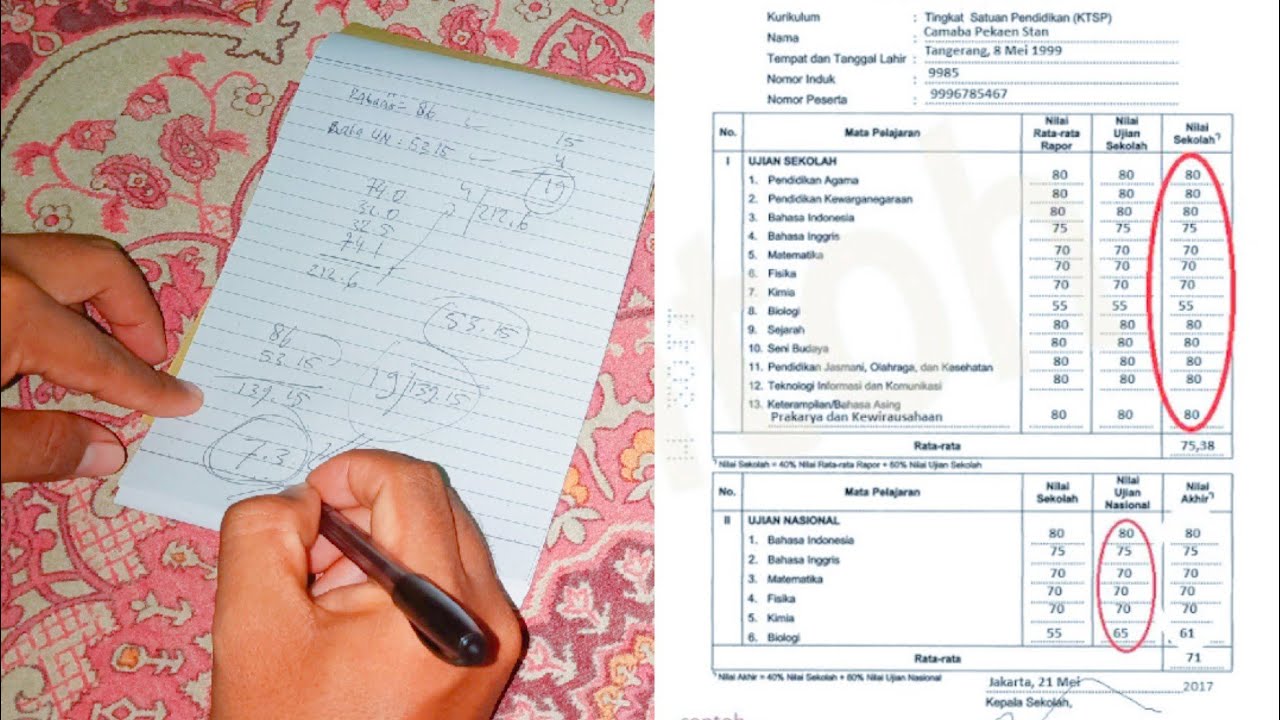 = 86
UN = 53.15
15
4
19
74.0
4 212.6
53.15
86
53.15
139.15
Kurikulum : Tingkat Satuan Pendidikan (KTSP)
Nama : Camaba Pekaen Stan
Tempat dan Tanggal Lahir : Tangerang, 8 Mei 1999
Nomor Induk : 9985
Nomor Peserta : 9996785467
No. Mata Pelajaran Nilai Rata-rata Rapor Nilai Ujian Sekolah Nilai Sekolah*)
I UJIAN SEKOLAH
1. Pendidikan Agama 80 80 80
2. Pendidikan Kewarganegaraan 80 80 80
3. Bahasa Indonesia 80 80 80
4. Bahasa Inggris 75 75 75
5. Matematika 70 70 70
6. Fisika 70 70 70
7. Kimia 70 70 70
8. Biologi 55 55 55
9. Sejarah 80 80 80
10. Seni Budaya 80 80 80
11. Pendidikan Jasmani, Olahraga, dan Kesehatan 80 80 80
12. Teknologi Informasi dan Komunikasi 80 80 80
13. Keterampilan/Bahasa Asing
Prakarya dan Kewirausahaan 80 80 80
Rata-rata 75,38
*) Nilai Sekolah = 40% Nilai Rata-rata Rapor + 60% Nilai Ujian Sekolah
No. Mata Pelajaran Nilai Sekolah Nilai Ujian Nasional Nilai Akhir*)
II UJIAN NASIONAL
1. Bahasa Indonesia 80 80 80
2. Bahasa Inggris 75 75 75
3. Matematika 70 70 70
4. Fisika 70 70 70
5. Kimia 70 70 70
6. Biologi 55 65 61
Rata-rata 71
*) Nilai Akhir = 40% Nilai Sekolah + 60% Nilai Ujian Nasional
Jakarta, 21 Mei 2017
Kepala Sekolah,
contoh